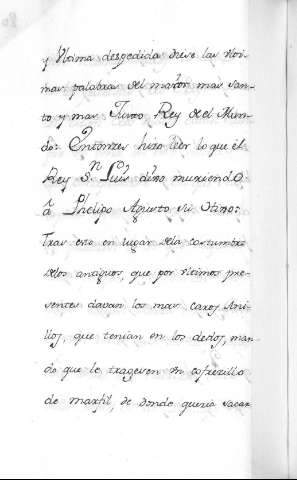 y Vltima despedida oiese las vlti-
mas palabras del maior mas san-
to y mas Justo Rey del Mun-
do: Entonzes hizo leer lo que el
Rey Sn. Luis dexo muriendo
â Phelipo Agusto su
Tras esto en lugar dela costumbre
delos antiguos, que por vltimos pre-
sentes davan los mas caros Ani-
llos, que tenian en los dedos, man-
do que le tragesen un cofrezillo
de marfil, de donde queria sacar